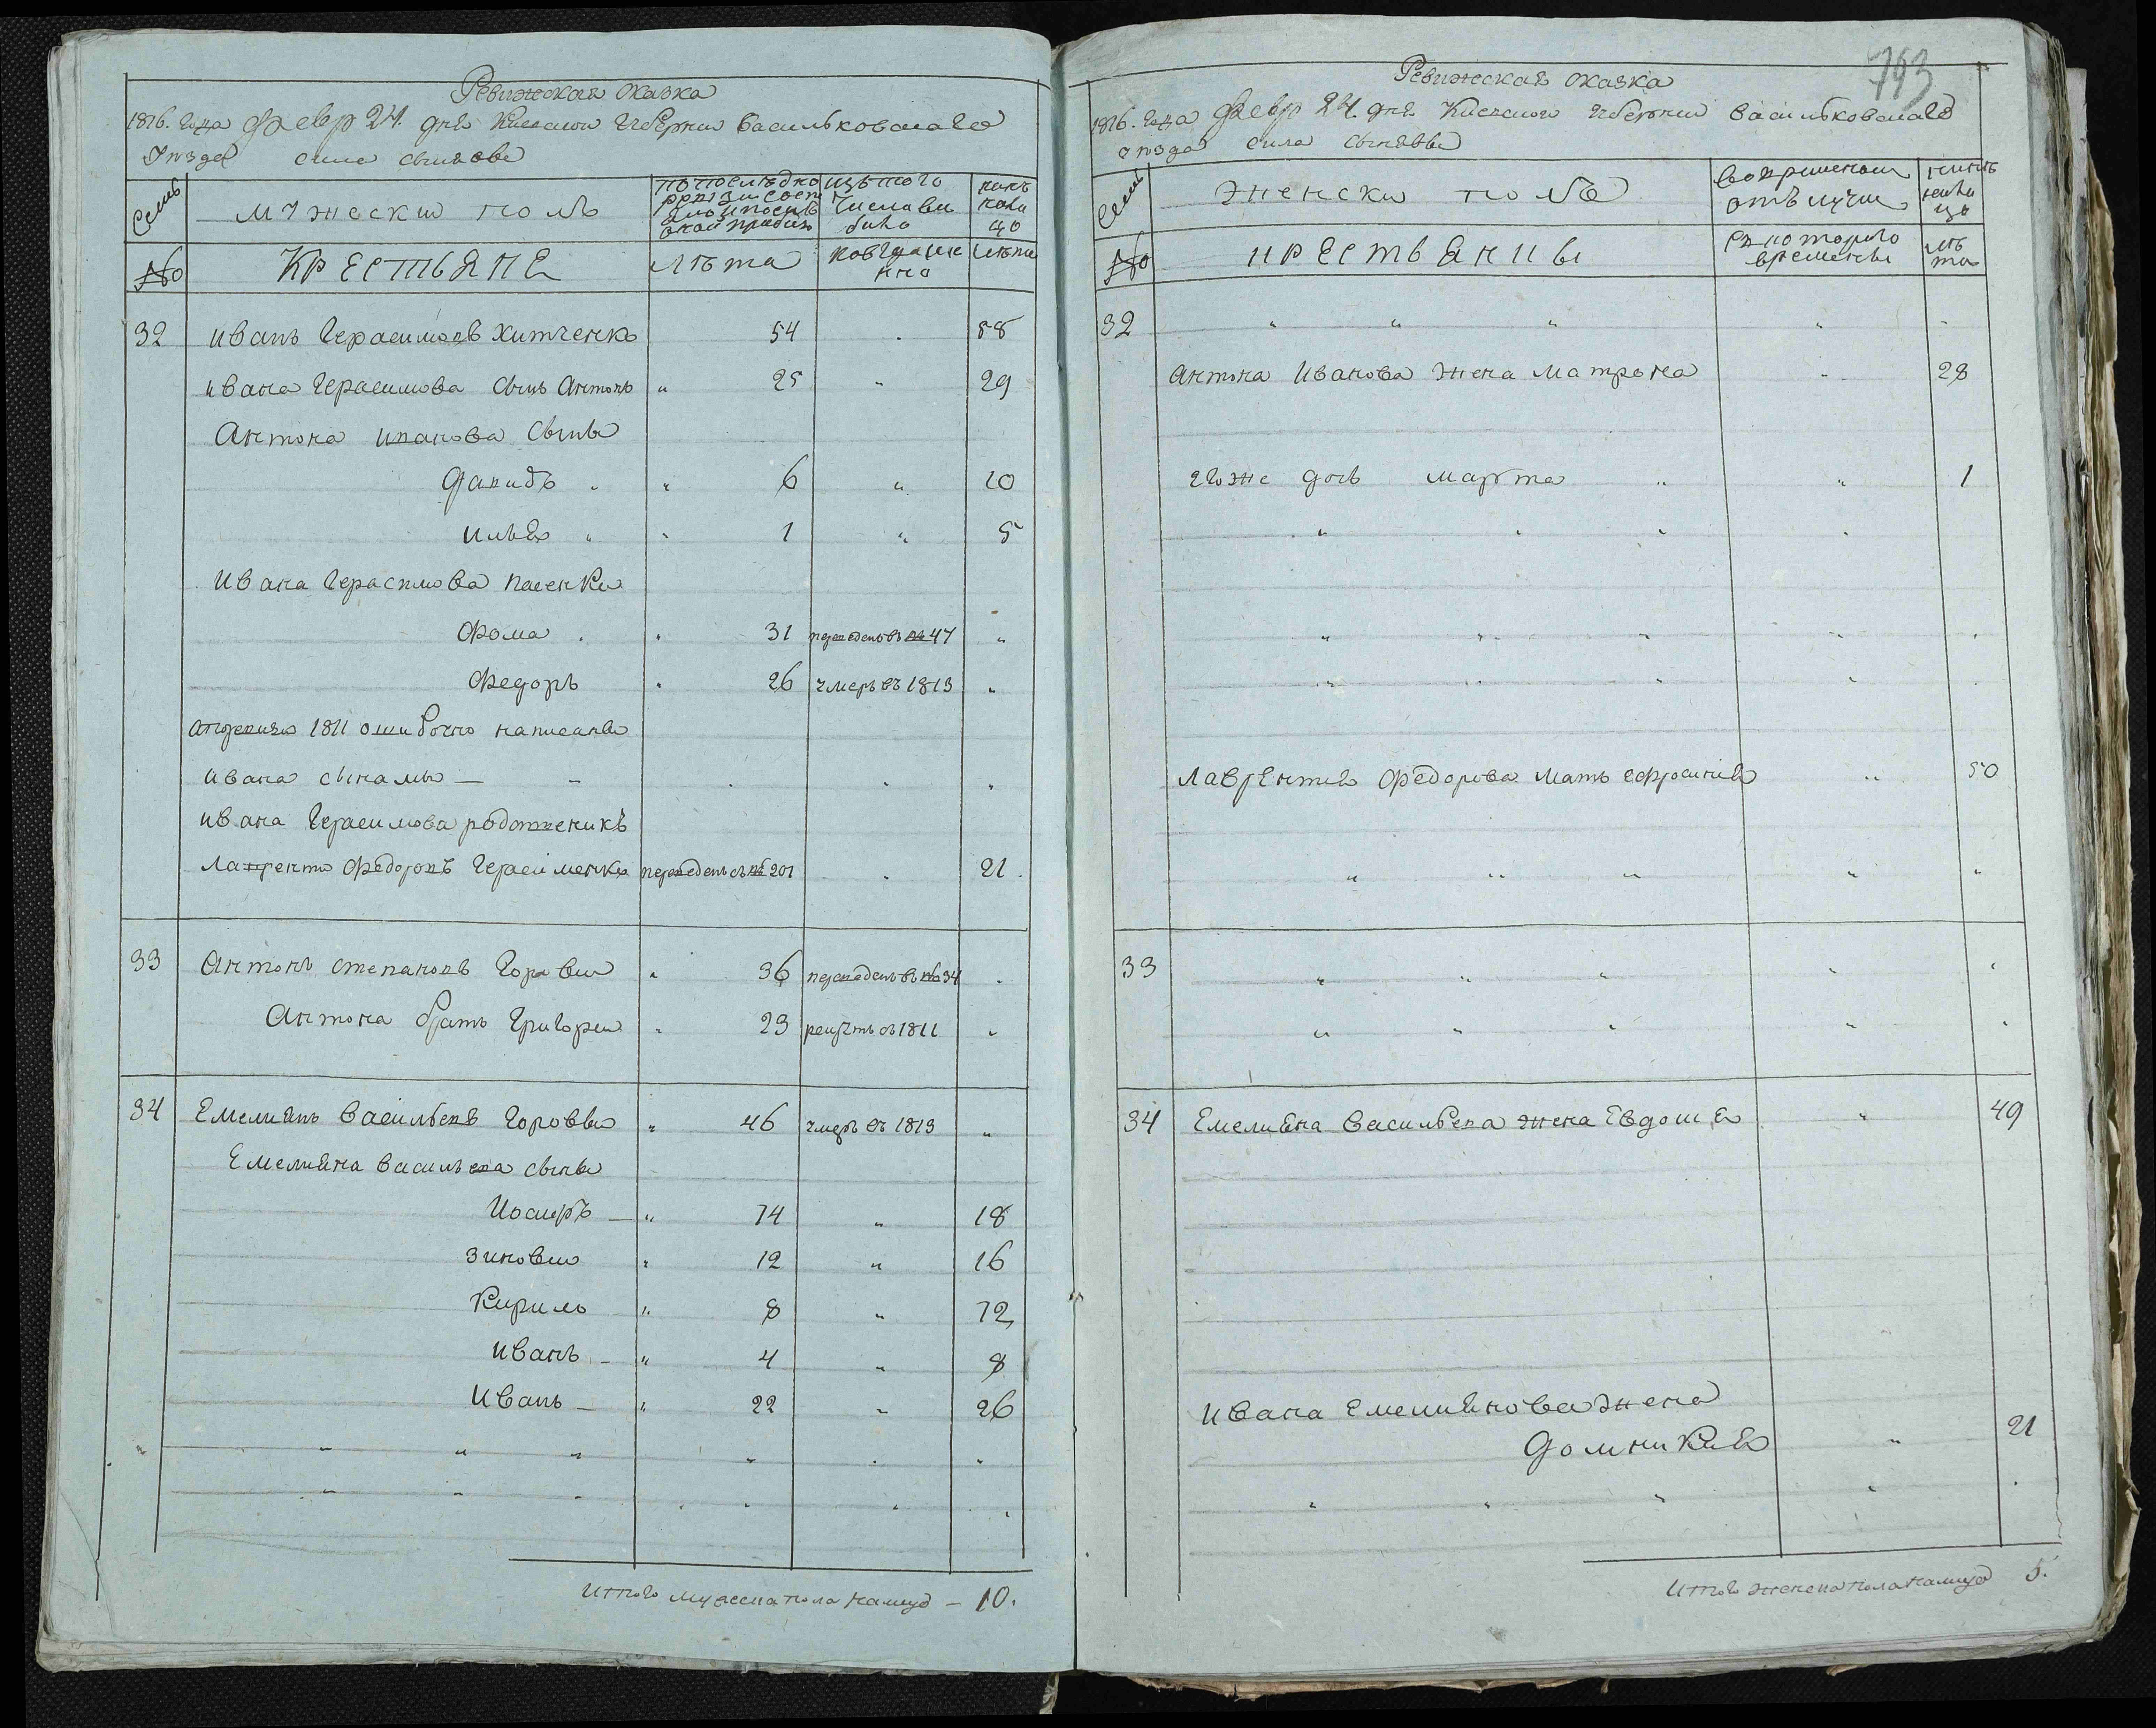 Ревижская сказка
1816. года Февр 24. дня Киевской губернии Васильковскаго
уезда села
Семьи
мужески полъ
№
КРЕСТЬЯНЕ
Лѣта
Лѣта
32 Иванъ Герасимовъ Хитченко 54 58
Ивана Герасимова сынъ Антонъ " 25 " 29
Антона Иванова сыны
Давидъ " 6 " 10
Илья " " 1 " 5
Ивана Герасимова пасенки
Фома " 31 переведенъ въ № 47 "
Федоръ " 26 умеръ въ 1813 "
а по ревизии 1811 ошибочно написаны
Ивана сынамы —
Ивана Герасимова родственикъ
Лаврентии Федоровъ Герасименко переведенъ съ № 201 " 21
33 Антонъ Степановъ Горовыи " 36 переведенъ въ № 34 "
Антона братъ Григореи " 23 рекрутъ съ 1811 "
34 Емелиянъ Васильевъ Горовыи " 46 умеръ въ 1813 "
Емелияна Васильева сыны
Иосифъ — " 14 " 18
Зиновеи " 12 " 16
Кирило " 8 " 12
Иванъ — " 4 " 8
Иванъ — " 22 " 26
Итого мужеска пола налицо — 10.
793
Ревижская сказка
1816. года Февр 24. дня Киевской губернии Васильковскаго
уезда села
Семьи
женски полъ
во временной отълучки
№
крестьянки
с которого времены
лѣта
32 " " " " "
Антона Иванова жена Матрона " 28
Егоже дочь Марта " " 1
Лаврентия Федорова мать Ефросиния " 50
33 " " " " "
34 Емелияна Васильева жена Евдокия " 49
Ивана Емелиянова жена
Домникия " 21
Итого женска пола налицо 5.